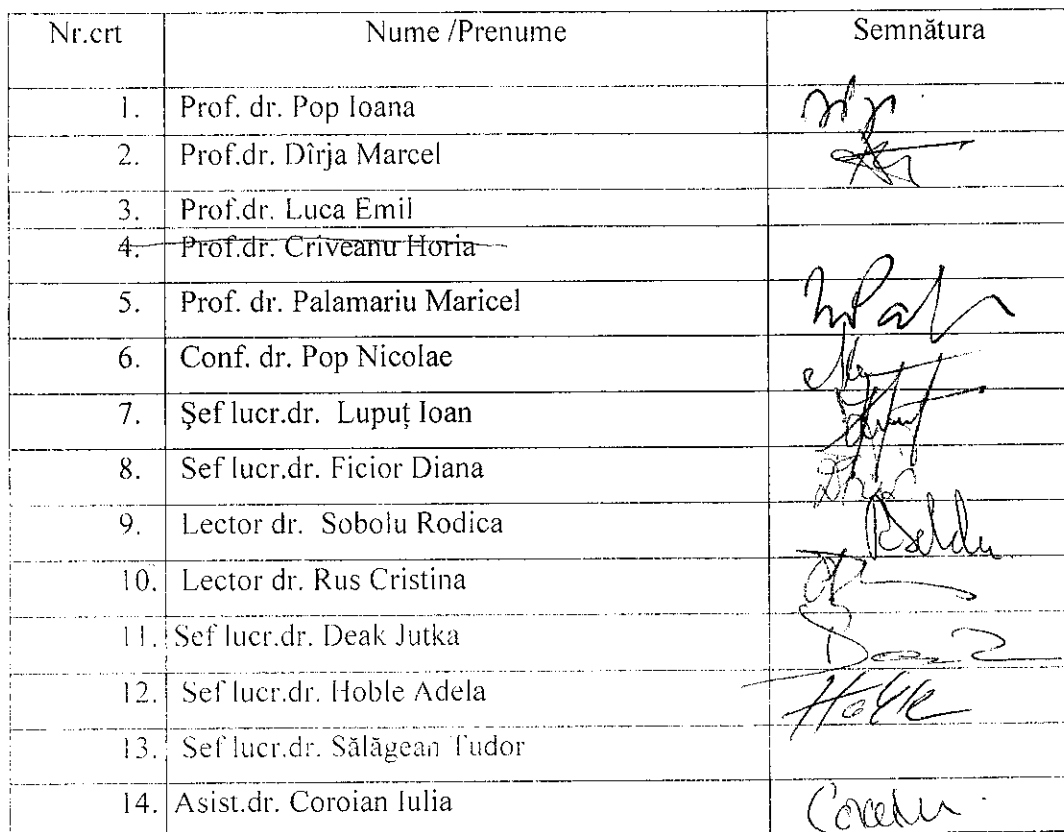 Nr.crt Nume /Prenume Semnătura
1. Prof. dr. Pop Ioana
2. Prof.dr. Dîrja Marcel
3. Prof.dr. Luca Emil
4. Prof.dr. Criveanu Horia
5. Prof. dr. Palamariu Maricel
6. Conf. dr. Pop Nicolae
7. Șef lucr.dr. Lupuț Ioan
8. Sef lucr.dr. Ficior Diana
9. Lector dr. Sobolu Rodica
10. Lector dr. Rus Cristina
11. Sef lucr.dr. Deak Jutka
12. Sef lucr.dr. Hoble Adela
13. Sef lucr.dr. Sălăgean Tudor
14. Asist.dr. Coroian Iulia